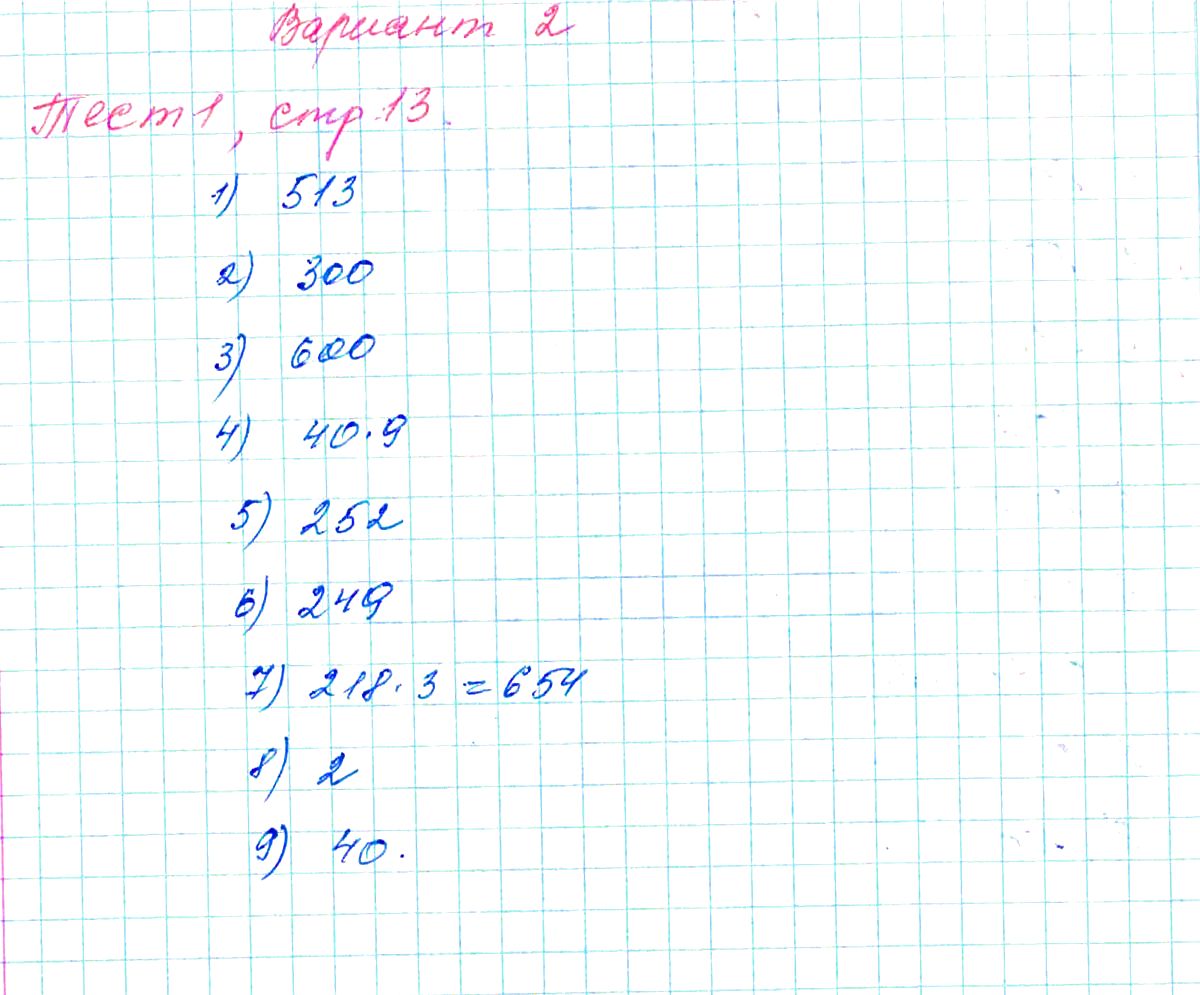 Вариант 2
Тест 1, стр. 13.
1) 513
2) 300
3) 600
4) 40·9
5) 252
6) 249
7) 218·3=654
8) 2
9) 40.